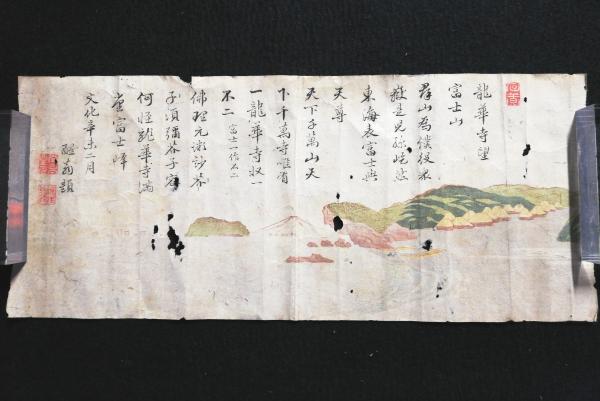 龍華寺望
富士山
群山為僕従衆
嶽是児孫屹然
東海表富士與
天尊
天下千萬山天
下千萬寺唯有
一龍華寺収一
不二 富士一作不二
佛理元微妙芥
子須彌芥子容
何怪龍華寺満
堂富士峰
文化辛未二月
題